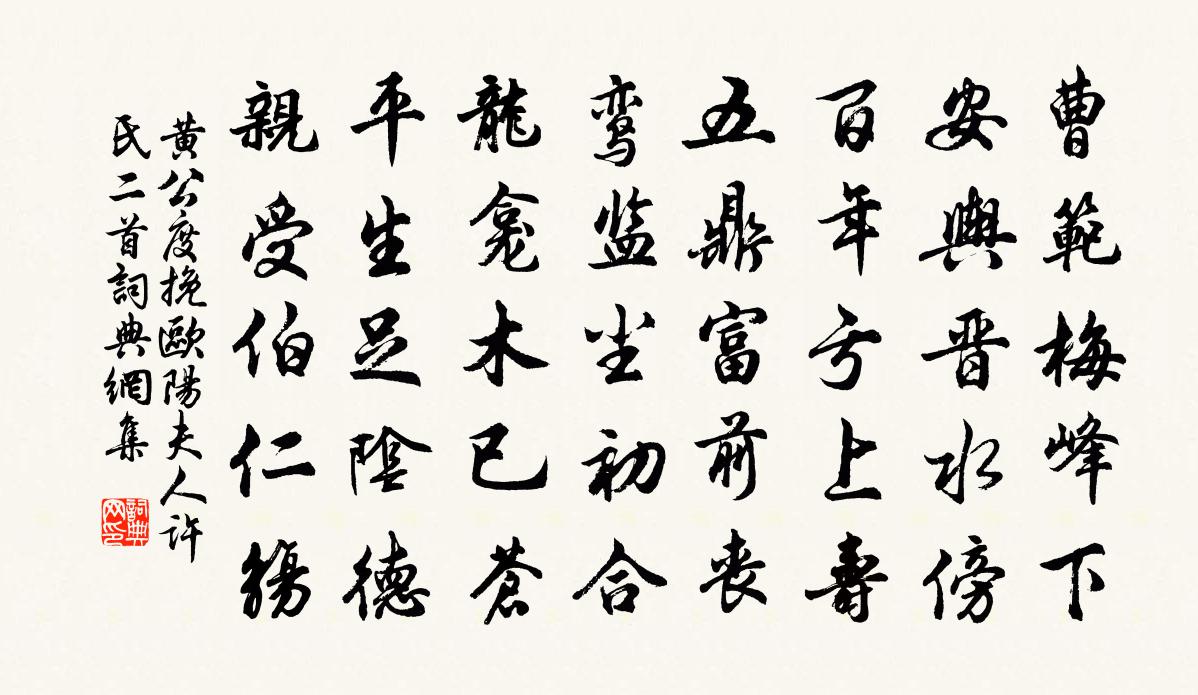 曹範梅峰下
安輿晋水傍
百年亏上壽
五鼎富前喪
鸾监尘初合
龍龛木已蒼
平生足陰德
親受伯仁觴
黄公度挽歐陽夫人許
氏二首詞典網集
詞典网印